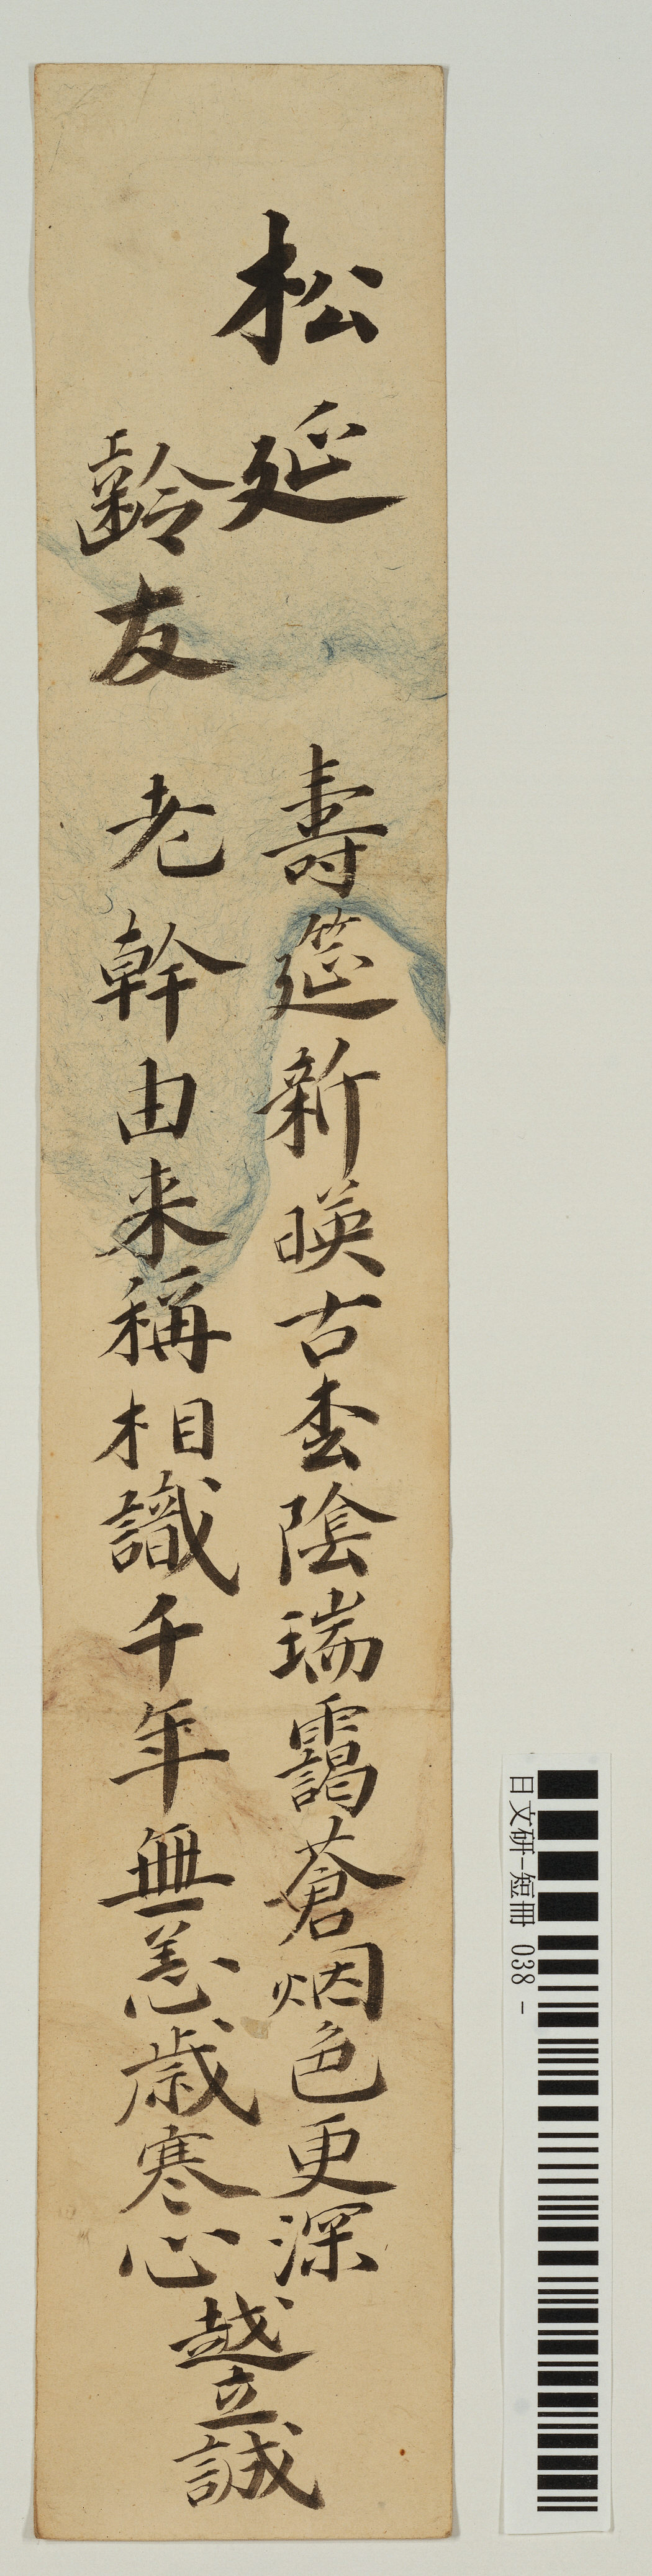 松延
齡友
壽筵新暎古枩陰瑞靄蒼烟色更深
老幹由来稱相識千年無恙歳寒心
越立誠
日文研-短冊 038 -